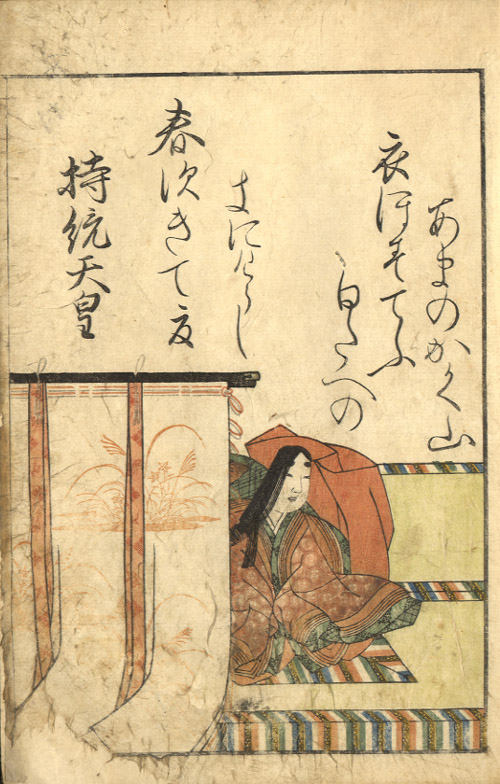 持統天皇
春すきて夏
きにけらし
白たへの
衣ほすてふ
あまのかく山